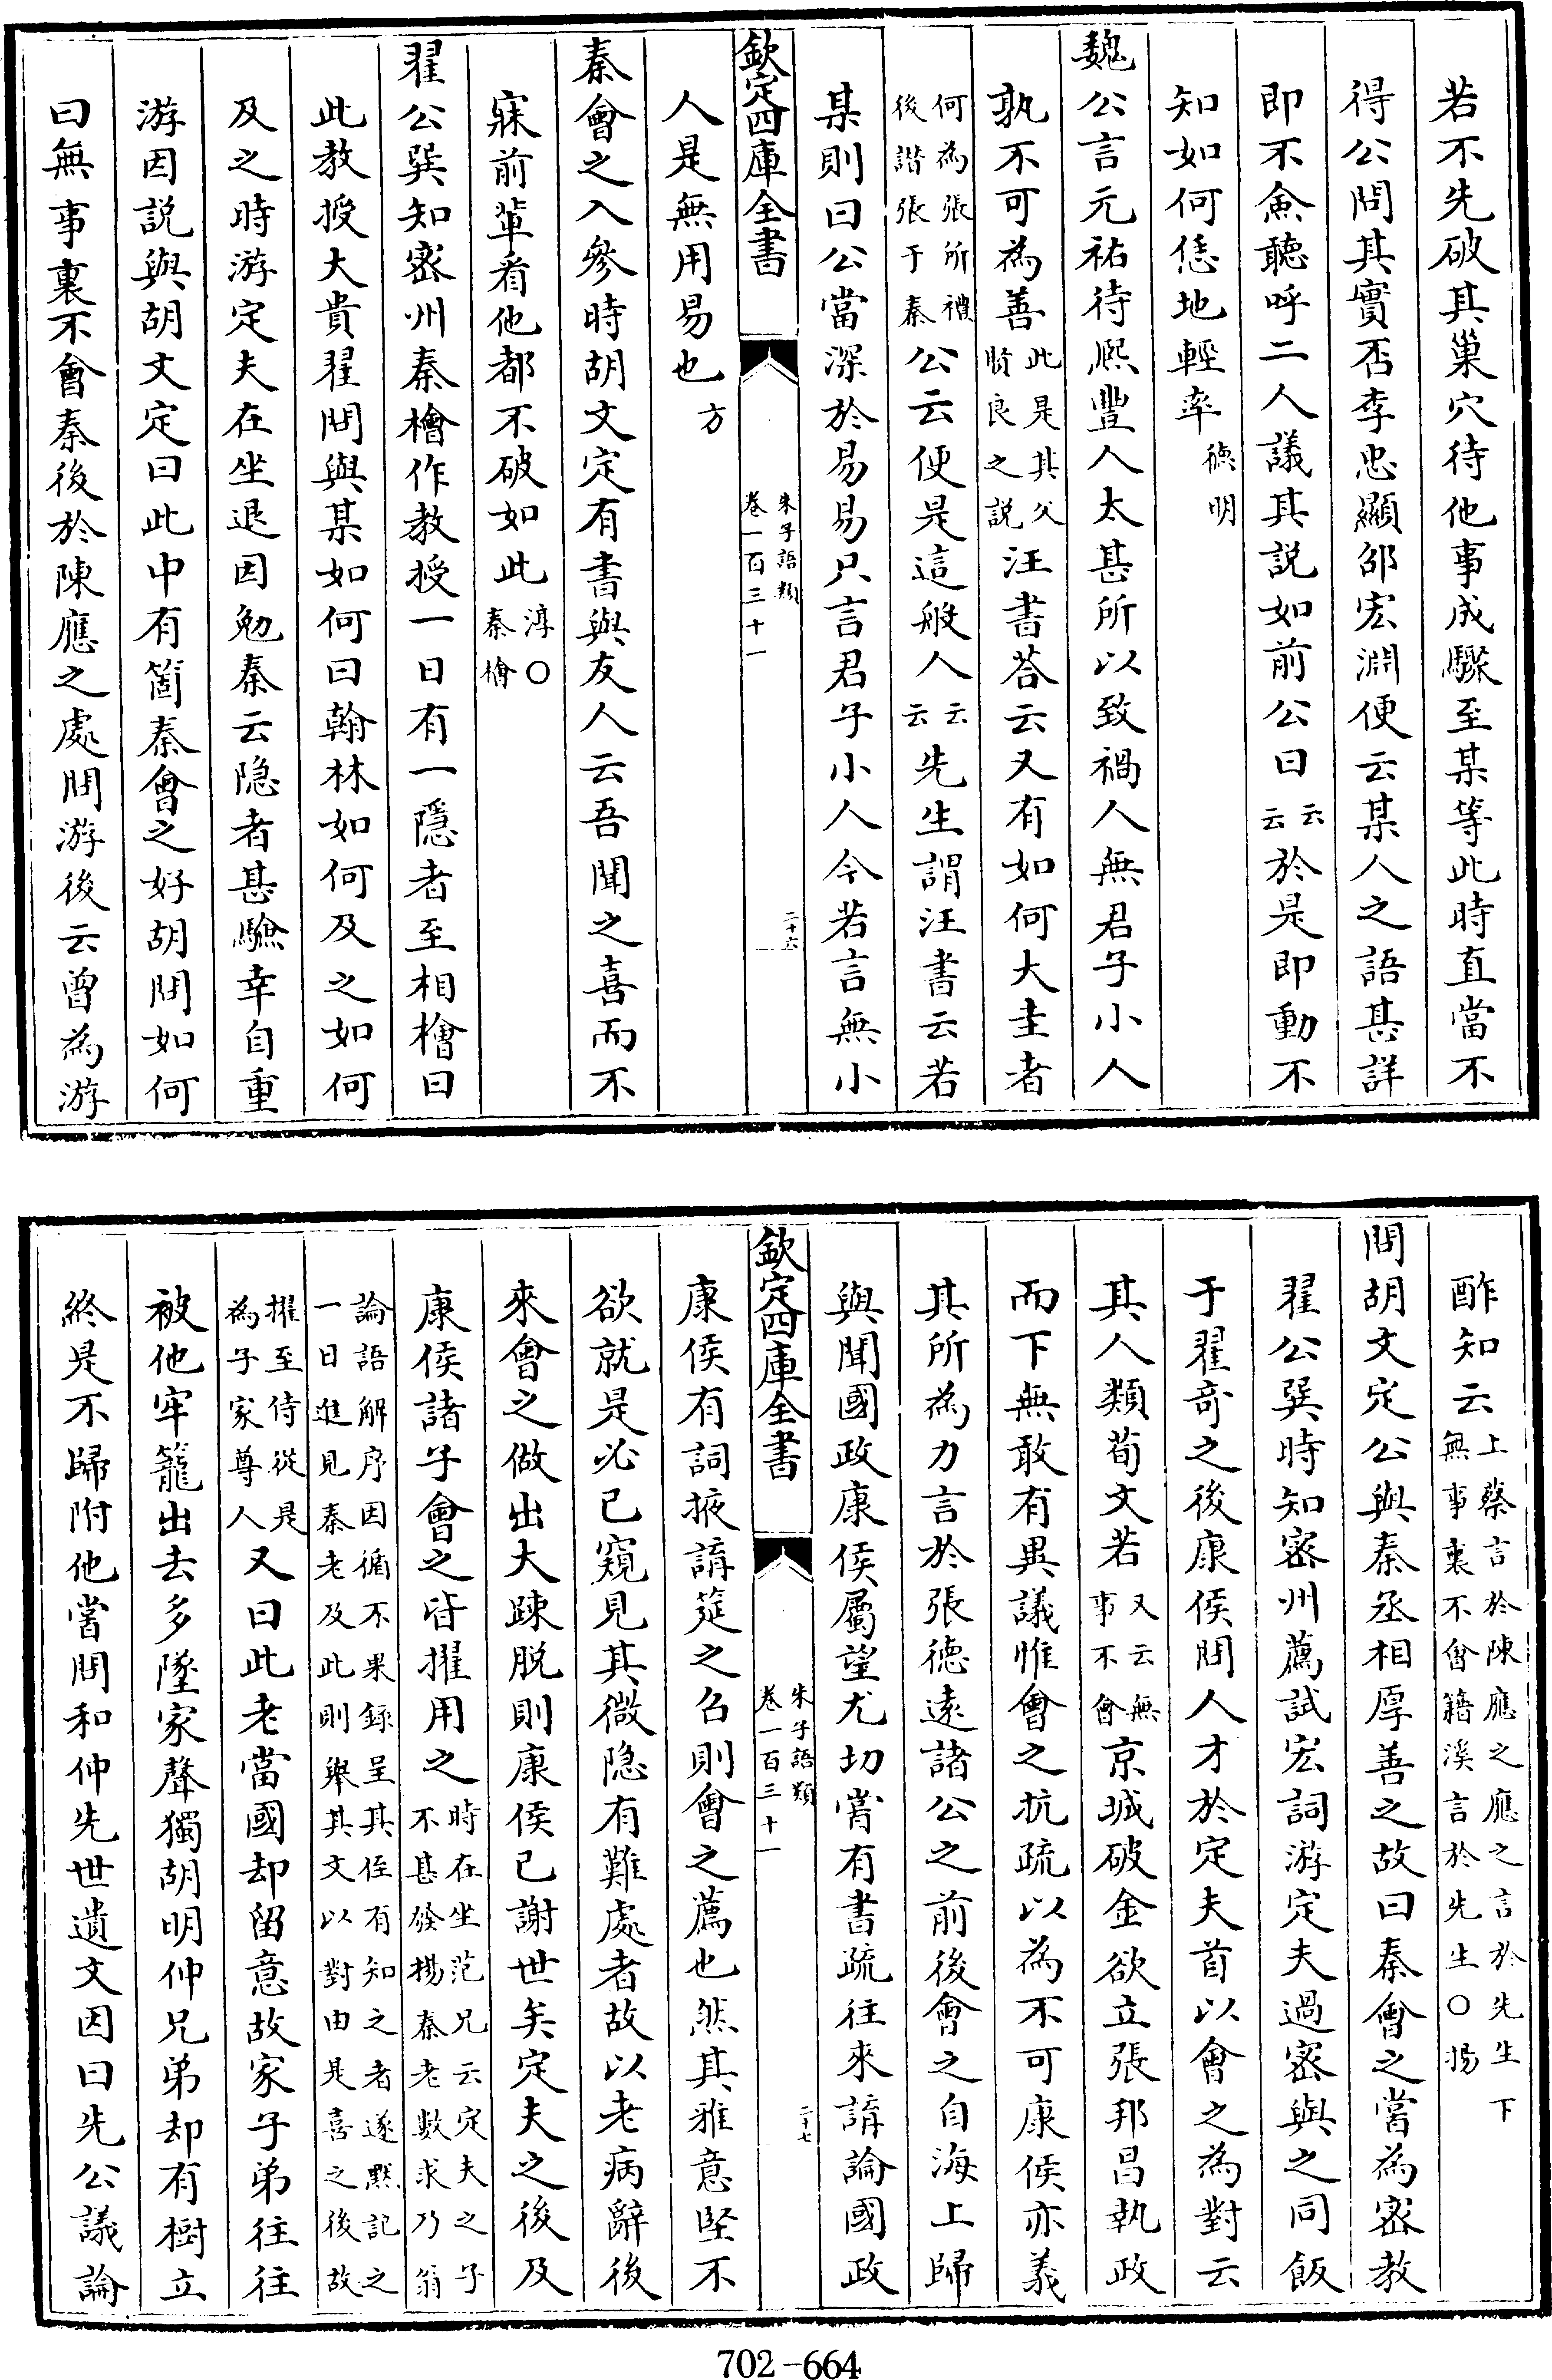 若不先破其巢穴待他事成驟至某等此時直當不
得公問其實否李忠顯邵宏淵便云某人之語甚詳
即不兪聽呼二人議其説如前公曰云云於是即動不
知如何恁地輕率德明
魏公言元祐待熙豐人太甚所以致禍人無君子小人
孰不可為善此是其父賢良之説汪書荅云又有如何大圭者
何為張所禮後譖張于秦公云便是這般人云云先生謂汪書云若
某則曰公當深於易易只言君子小人今若言無小
人是無用易也方
欽定四庫全書
朱子語類
卷一百三十一
二十六
秦會之入參時胡文定有書與友人云吾聞之喜而不
寐前輩看他都不破如此淳〇秦檜
翟公巽知密州秦檜作教授一日有一隱者至相檜曰
此教授大貴翟問與某如何曰翰林如何及之如何
及之時游定夫在坐退因勉秦云隐者甚驗幸自重
游因説與胡文定曰此中有箇秦會之好胡問如何
曰無事裏不會秦後於陳應之處問游後云曾為游
酢知云上蔡言於陳應之應之言於先生下無事裏不會籍溪言於先生〇揚
問胡文定公與秦丞相厚善之故曰秦會之嘗為密教
翟公巽時知密州薦試宏詞游定夫過密與之同飯
于翟竒之後康侯問人才於定夫首以會之為對云
其人類荀文若又云無事不會京城破金欲立張邦昌執政
而下無敢有異議惟會之抗疏以為不可康侯亦義
其所為力言於張德遠諸公之前後會之自海上歸
與聞國政康侯屬望尤切嘗有書疏往來講論國政
欽定四庫全書
朱子語類
卷一百三十一
二十七
康侯有詞掖講筵之召則會之薦也然其雅意堅不
欲就是必已窺見其微隐有難處者故以老病辭後
來會之做出大疎脱則康侯已謝世矣定夫之後及
康侯諸子會之皆擢用之時在坐范兄云定夫之子不甚發揚秦老數求乃翁
論語解序因循不果録呈其侄有知之者遂黙記之一日進見秦老及此則舉其文以對由是喜之後故
擢至侍從是為子家尊人又曰此老當國却留意故家子弟往往
被他牢籠出去多墜家聲獨胡明仲兄弟却有樹立
終是不歸附他嘗問和仲先世遺文因曰先公議論
702-664